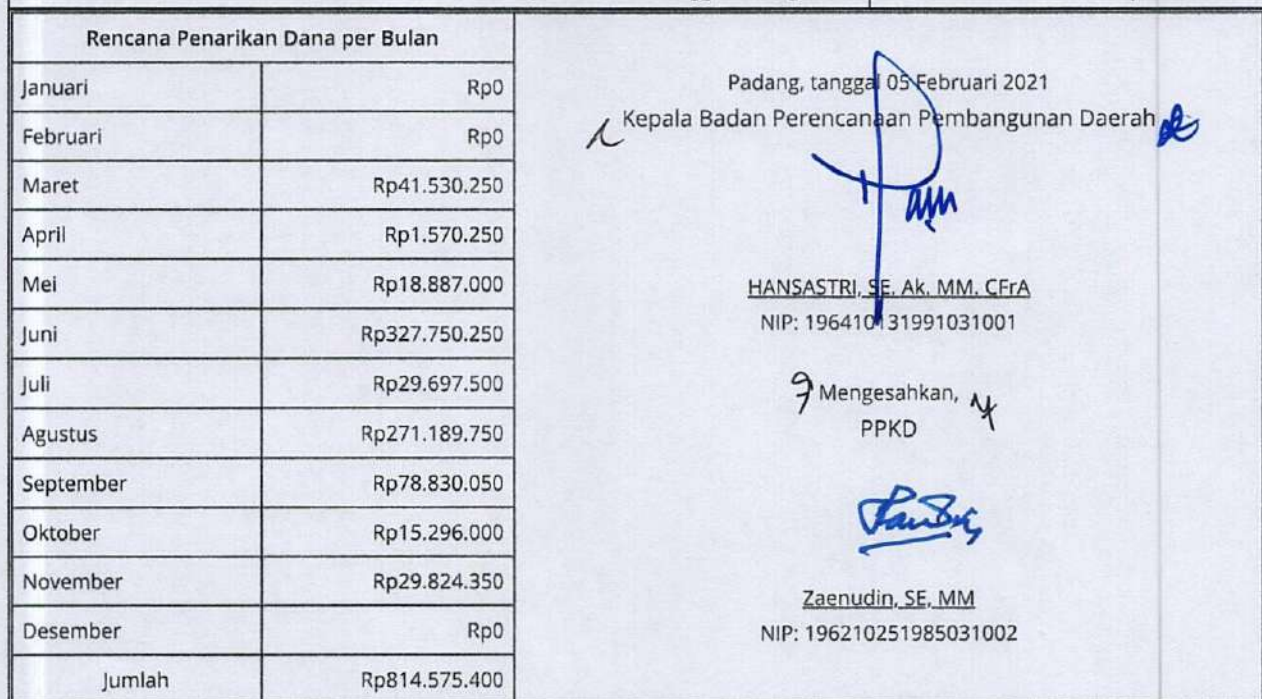 Rencana Penarikan Dana per Bulan
Januari Rp0
Februari Rp0
Maret Rp41.530.250
April Rp1.570.250
Mei Rp18.887.000
Juni Rp327.750.250
Juli Rp29.697.500
Agustus Rp271.189.750
September Rp78.830.050
Oktober Rp15.296.000
November Rp29.824.350
Desember Rp0
Jumlah Rp814.575.400
Padang, tanggal 05 Februari 2021
Kepala Badan Perencanaan Pembangunan Daerah
HANSASTRI, SE. Ak. MM. CFrA
NIP: 196410131991031001
Mengesahkan,
PPKD
Zaenudin, SE, MM
NIP: 196210251985031002